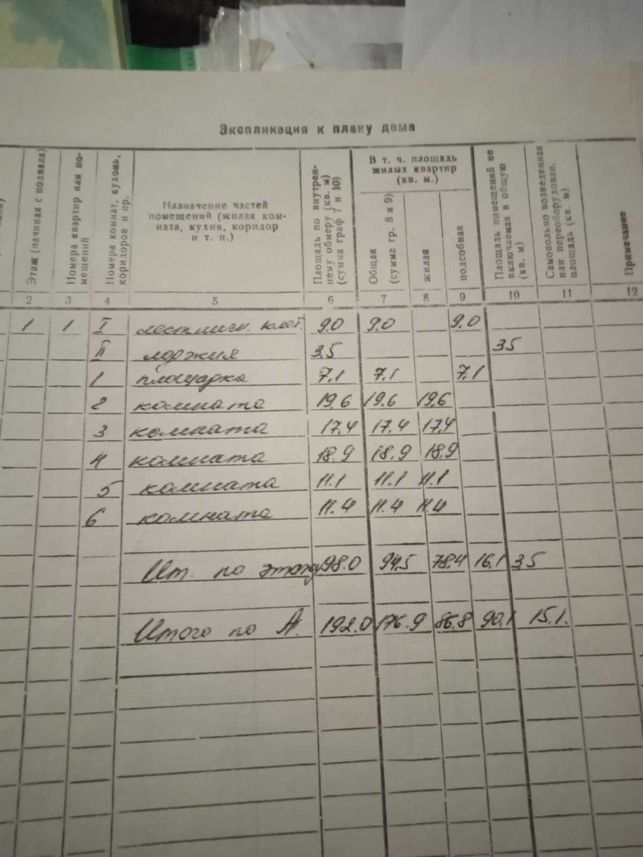 Экспликация к плану дома
Этаж (начиная с подвала)
Номера квартир или помещений
Номера комнат, кухонь, коридоров и пр.
Назначение частей помещений (жилая комната, кухня, коридор и т. п.)
Площадь по внутреннему обмеру (кв. м) (сумма граф 7 и 10)
В т. ч. площадь жилых квартир (кв. м.)
Общая (сумма гр. 8 и 9)
жилая
подсобная
Площадь помещений не включаемая в общую (кв. м)
Самовольно возведенная или переоборудован. площадь (кв. м)
Примечание
2 3 4 5 6 7 8 9 10 11 12
1 1 I лестничн. клет. 9.0 9.0 9.0
II лоджия 3.5 35
1 площадка 7.1 7.1 7.1
2 комната 19.6 19.6 19.6
3 комната 17.4 17.4 17.4
4 комната 18.9 18.9 18.9
5 комната 11.1 11.1 11.1
6 комната 11.4 11.4 11.4
Ит. по этажу 98.0 94,5 78.4 16.1 3.5
Итого по А. 192.0 176.9 86.8 90.1 15.1.